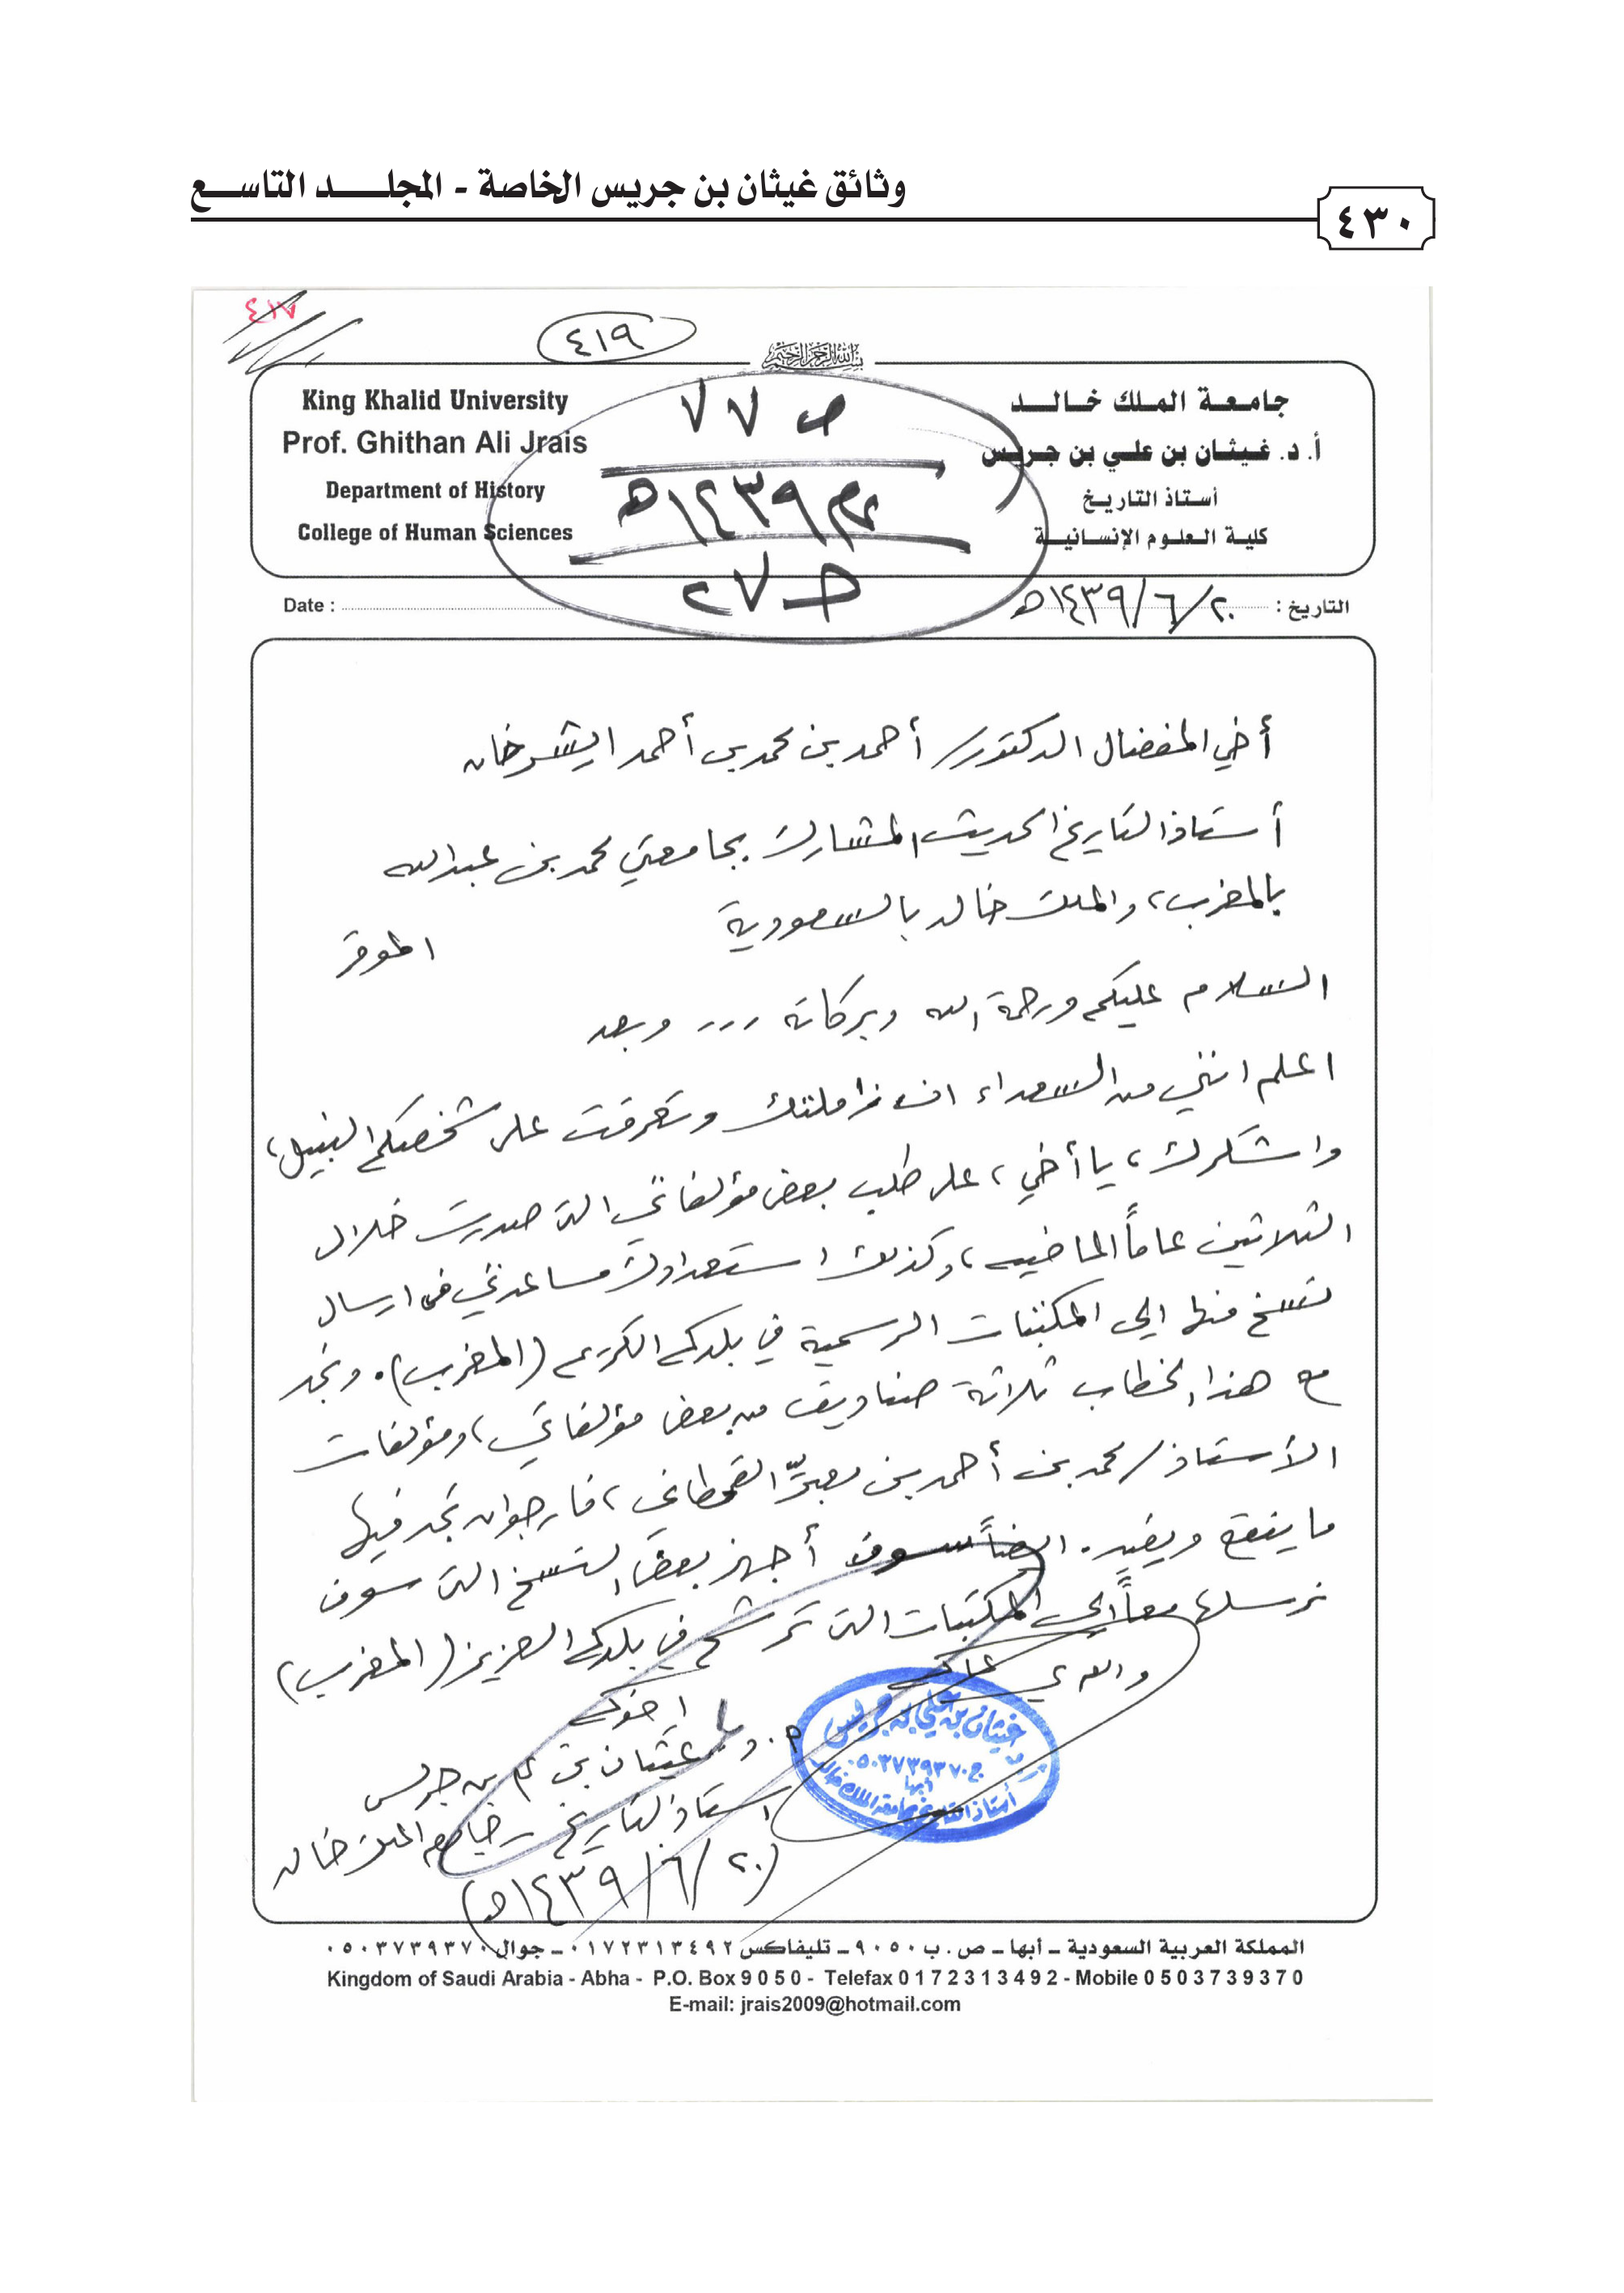 وثائق غيثان بن جريس الخاصة - المجلد التاسع
٤٣٠
٤١٧
٤١٩
بسم الله الرحمن الرحيم
King Khalid University
Prof. Ghithan Ali Jrais
Department of History
College of Human Sciences
جامعة الملك خالد
أ. د. غيثان بن علي بن جريس
أستاذ التاريخ
كلية العلوم الإنسانية
ص ٧٧
١٤٣٩هـ
ح ٢٧
Date :
التاريخ : ٢٠/٦/١٤٣٩هـ
أخي المفضال الدكتور/ أحمد بن محمد بن أحمد
أستاذ التاريخ الحديث المشارك بجامعتي محمد بن عبدالله
بالمغرب، والملك خالد بالسعودية
الموقر
السلام عليكم ورحمة الله وبركاته ... وبعد
اعلم انني من السعداء ان زاملتك وتعرفت على شخصكم النبيل،
واشكرك، يا أخي، على طلب بعض مؤلفاتي التي صدرت خلال
الثلاثين عاماً الماضية، وكذلك استعدادك مساعدتي في ارسال
نسخ منها إلى المكتبات الرسمية في بلدكم الكريم (المغرب). وتجد
مع هذا الخطاب ثلاثة صناديق من بعض مؤلفاتي، ومؤلفات
الأستاذ/ محمد بن أحمد بن معبّر القحطاني، فارجوان تجد فيها
ما ينفع ويفيد. ايضاً سوف أجهز بعض النسخ التي سوف
نرسلها معاً إلى المكتبات التي ترشح في بلدكم العزيز (المغرب)
والله يرعاكم
اخوكم
أ. د. غيثان بن علي بن جريس
استاذ التاريخ - جامعة الملك خالد
(٢٠/٦/١٤٣٩هـ)
غيثان بن علي بن جريس
ج ٠٥٠٣٧٣٩٣٧٠
أبها
أستاذ التاريخ بجامعة الملك خالد
المملكة العربية السعودية – أبها – ص . ب ٩٠٥٠ – تليفاكس ٠١٧٢٣١٣٤٩٢ – جوال ٠٥٠٣٧٣٩٣٧٠
Kingdom of Saudi Arabia - Abha - P.O. Box 9 0 5 0 - Telefax 0 1 7 2 3 1 3 4 9 2 - Mobile 0 5 0 3 7 3 9 3 7 0
E-mail: jrais2009@hotmail.com